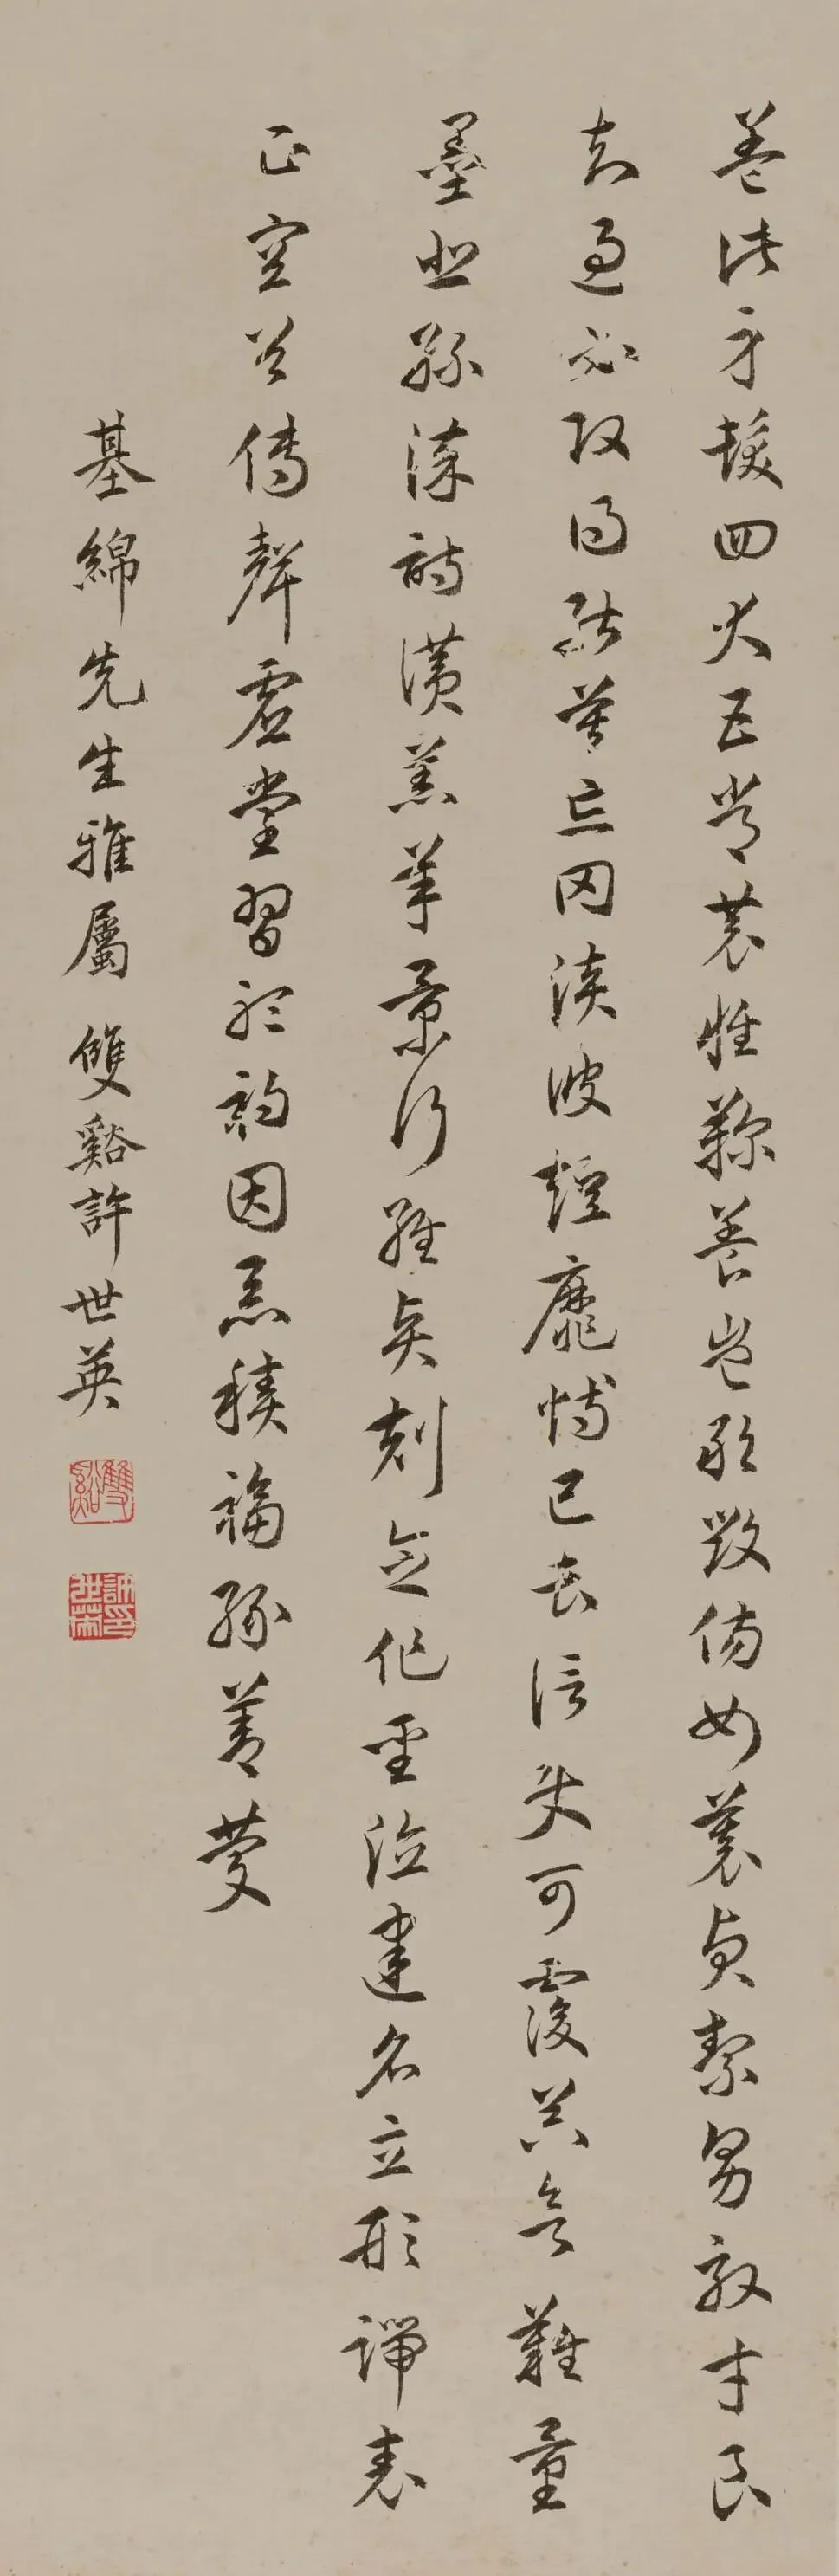 蓋此身髮四大五常恭惟鞠養豈敢毀傷女慕貞絜男效才良
知過必改得能莫忘罔談彼短靡恃己長信使可覆器欲難量
墨悲絲染詩讚羔羊景行維賢剋念作聖德建名立形端表
正空谷傳聲虛堂習聽禍因惡積福緣善慶
基綿先生雅屬 雙谿許世英
雙谿
許世英印